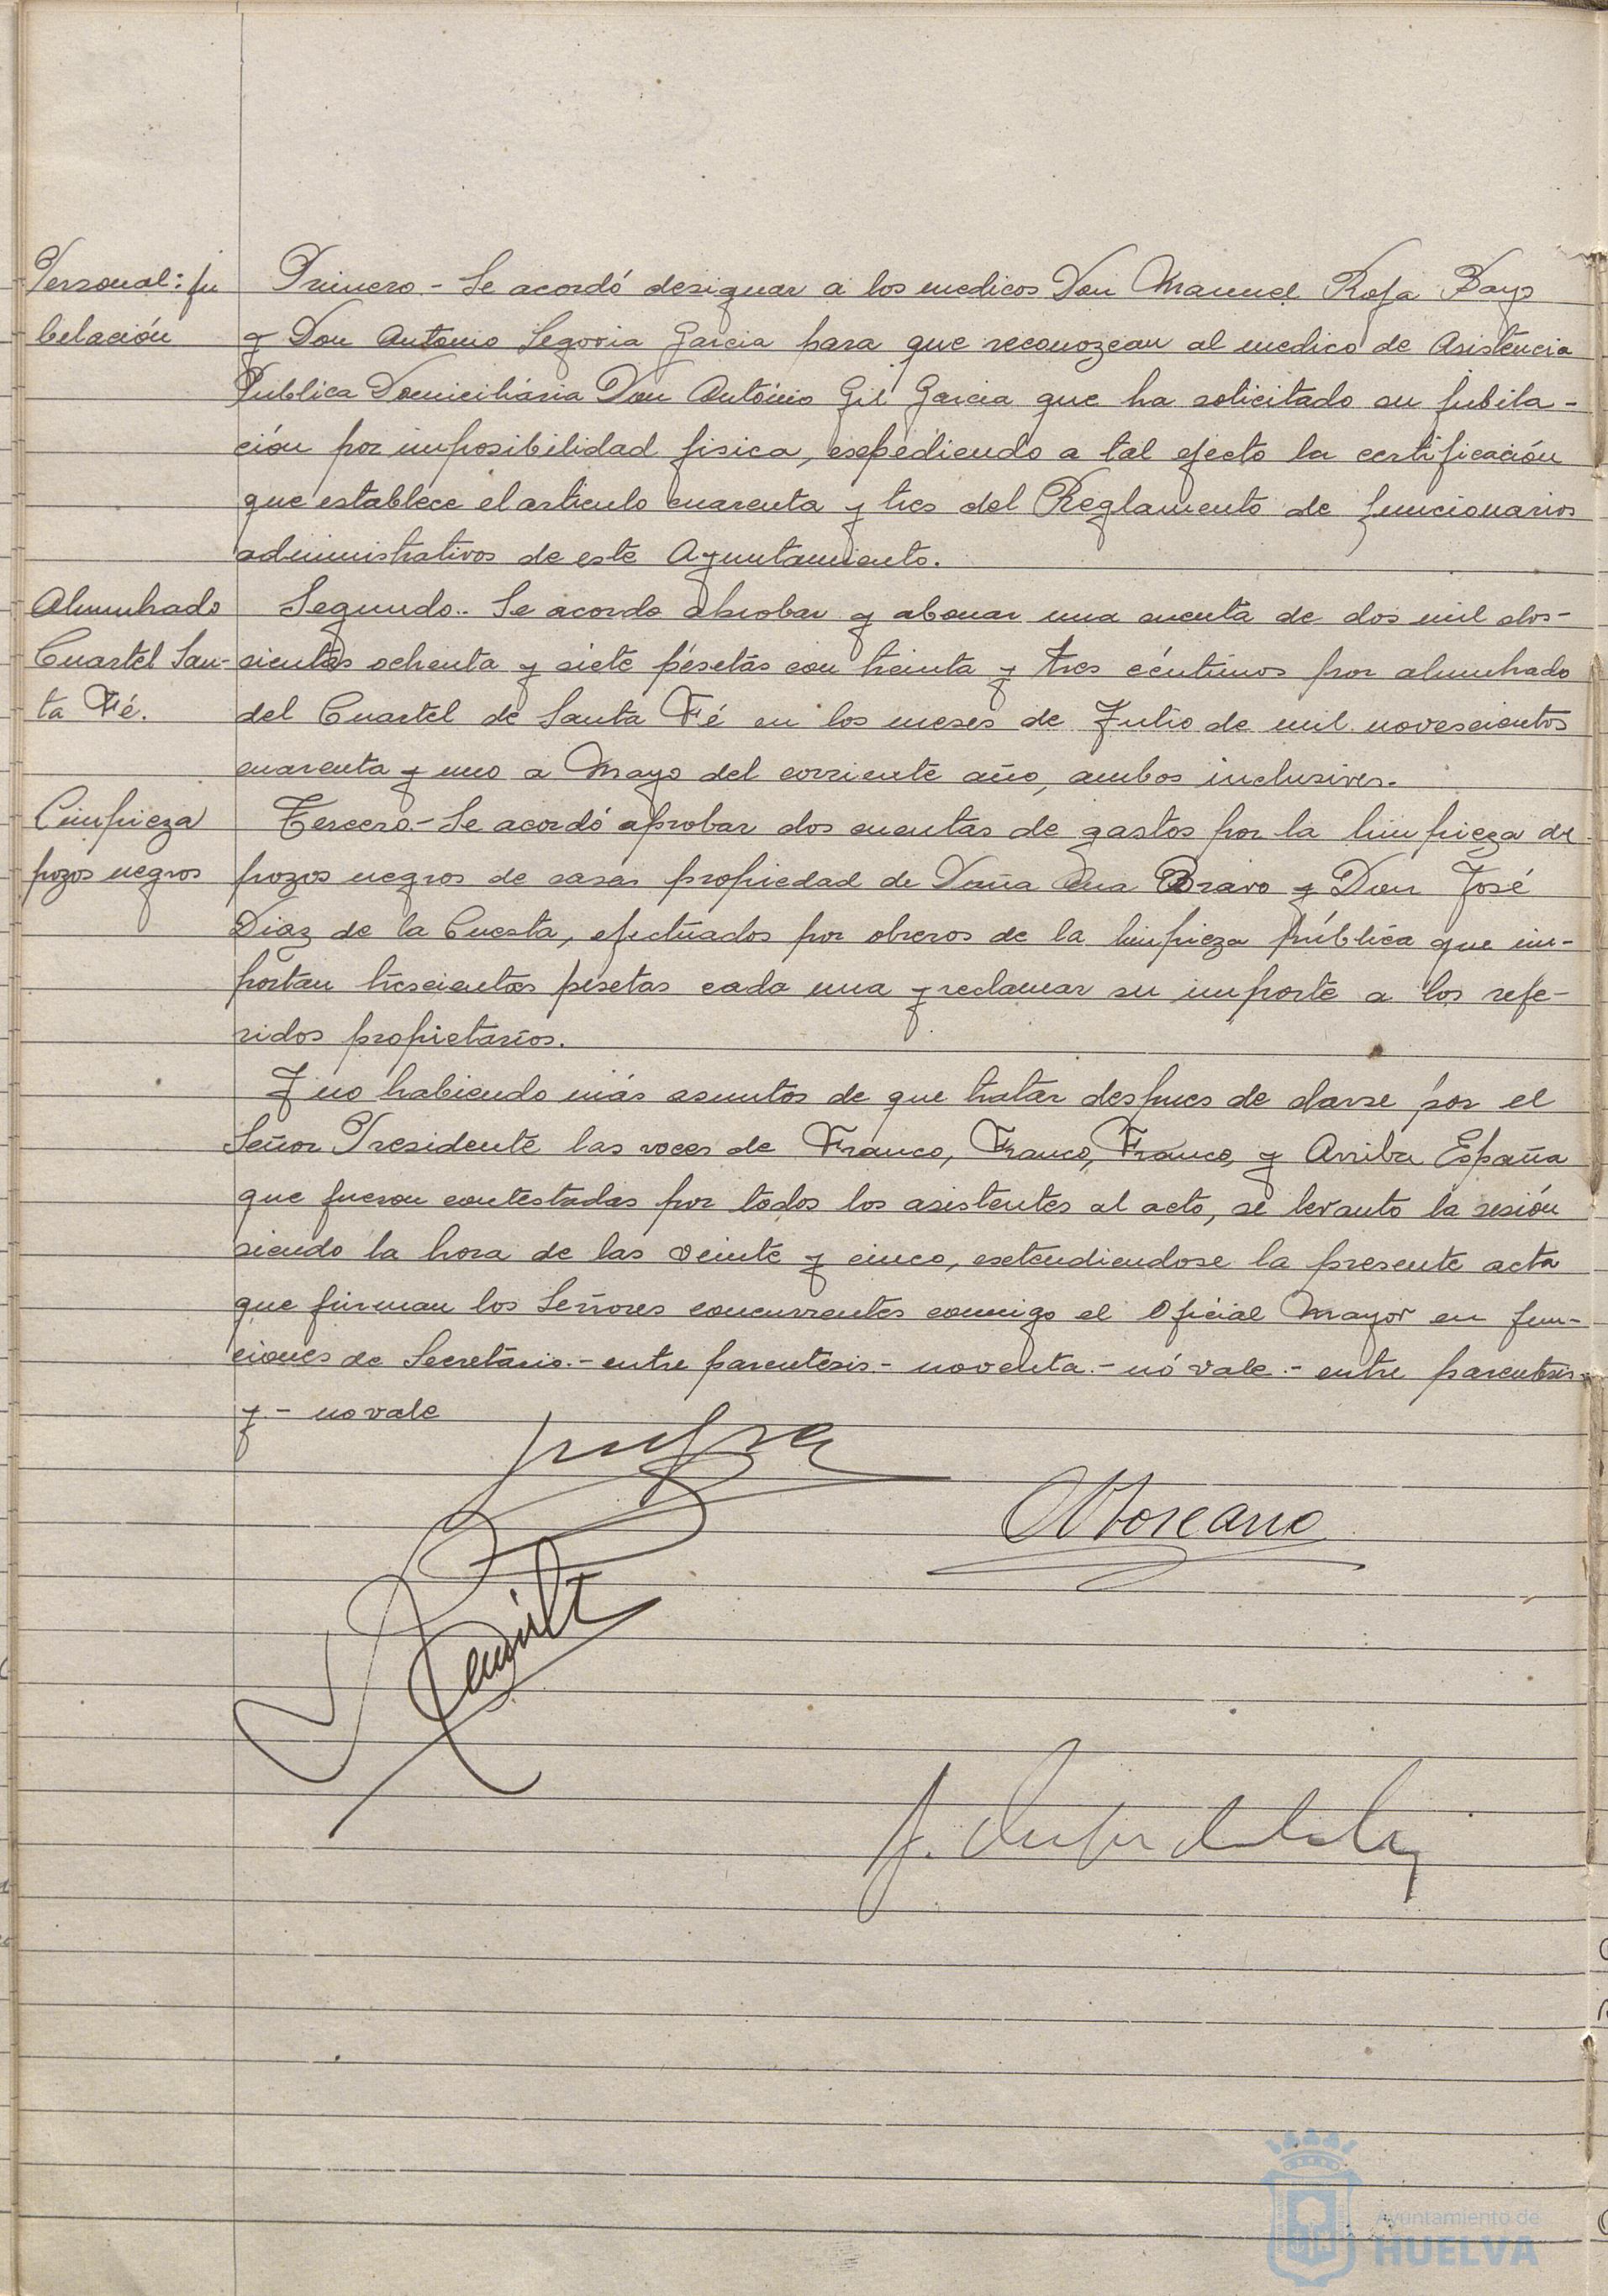 Personal: ju
bilación
Primero.- Se acordó designar a los medicos Don Manuel Rofa Bayo
y Don Antonio Segovia Garcia para que reconozcan al medico de Asistencia
Publica Domiciliária Don António Gil Garcia que ha solicitado su jubila-
ción por imposibilidad fisica, expediendo a tal efecto la certificación
que establece el articulo cuarenta y tres del Reglamento de funcionarios
administrativos de este Ayuntamiento.
Alumbrado
Cuartel San-
ta Fé.
Segundo.- Se acordo abrobar y abonar una cuenta de dos mil dos-
cientas ochenta y siete pesetas con treinta y tres céntimos por alumbrado
del Cuartel de Santa Fé en los meses de Julio de mil novescientos
cuarenta y uno a Mayo del corriente año, ambos inclusives.
Limpieza
pozos negros
Tercero.- Se acordó aprobar dos cuentas de gastos por la limpieza de
pozos negros de casas propiedad de Doña Ana Bravo y Don José
Diaz de la Cuesta, efectuados por obreros de la limpieza pública que im-
portan trescientas pesetas cada una y reclamar su importe a los refe-
ridos propietarios.
Y no habiendo más asuntos de que tratar despues de darse por el
Señor Presidente las voces de Franco, Franco, Franco, y Arriba España
que fueron contestadas por todos los asistentes al acto, se levanto la sesión
siendo la hora de las veinte y cinco, extendiendose la presente acta
que firman los Señores concurrentes conmigo el Oficial Mayor en fun-
ciones de Secretario.- entre parentesis.- noventa.- nó vale.- entre parentesis.-
y.- no vale
Ayuntamiento de
HUELVA